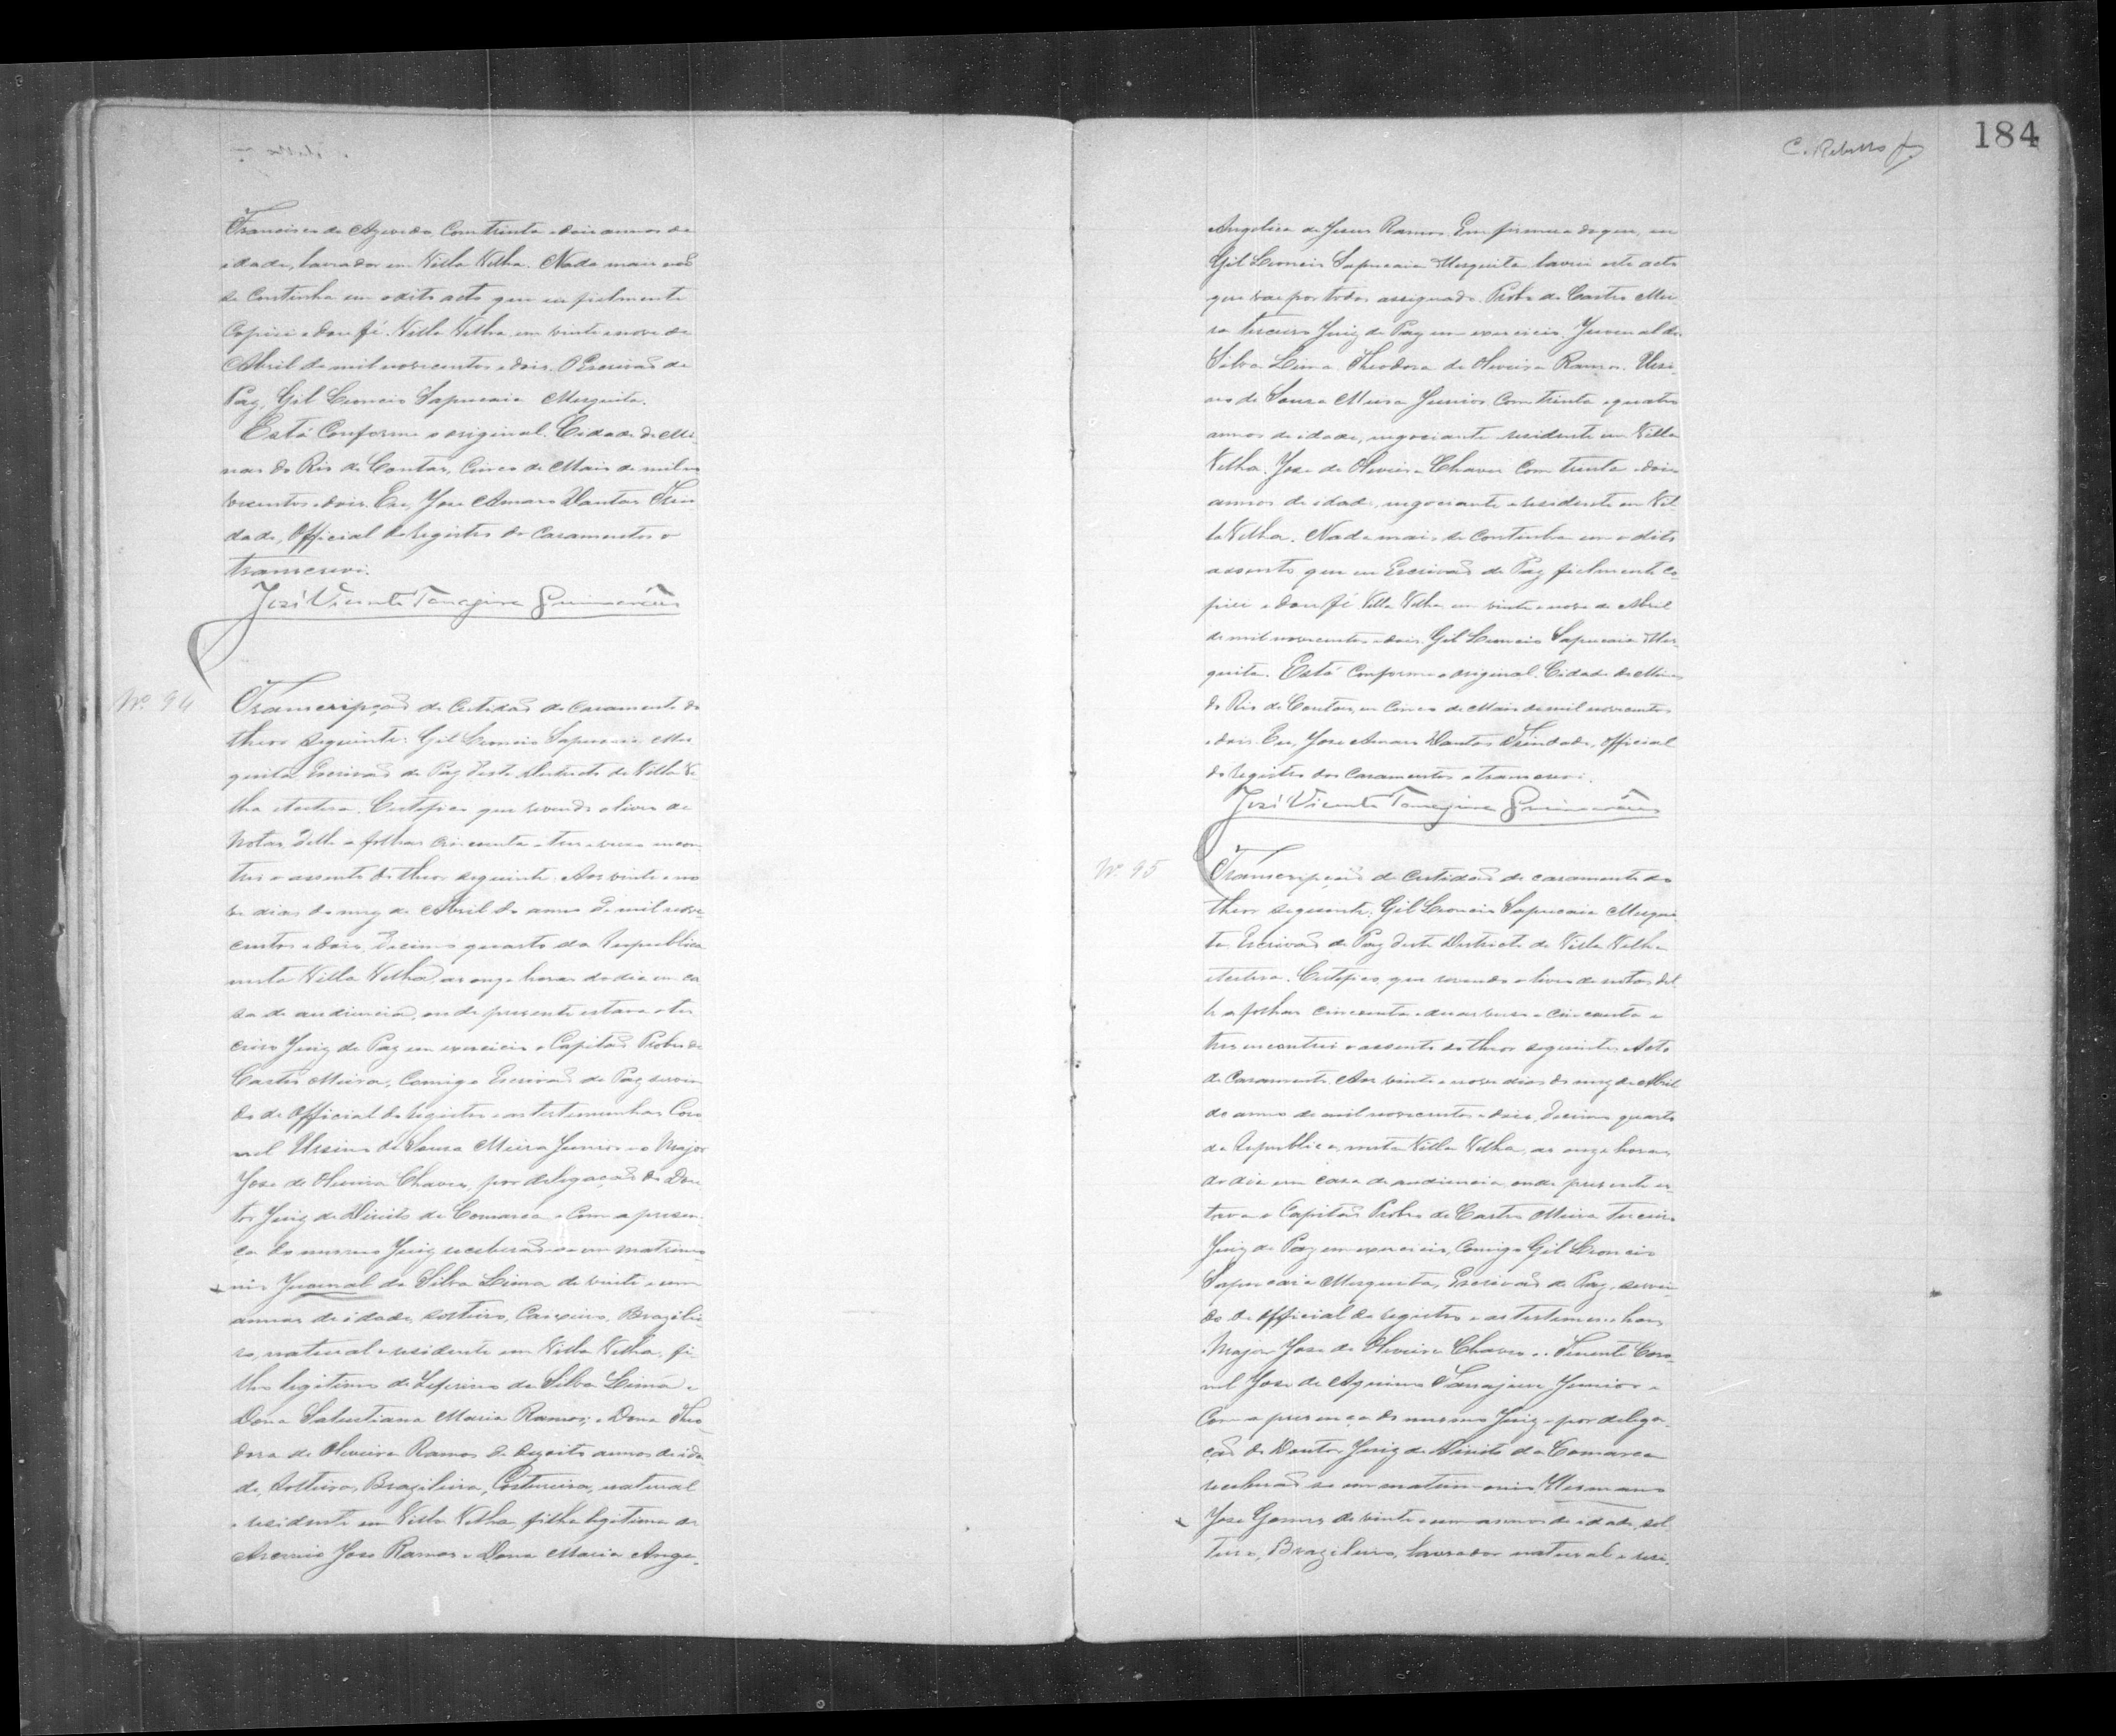 Francisco de Azevedo, Com trinta e dois annos de
edade, lavrador em Villa Velha. Nada mais não
se Continha em o dito acto que eu fielmente
Copiei e dou fé. Villa Velha, em vinte e nove de
Abril de mil novecentos e dois. O Escrivão de
Paz, Gil Leoncio Sapucaia Mesquita.
Está Conforme o original. Cidade de Mi-
nas do Rio de Contas, Cinco de Maio de mil no-
vecentos e dois. Eu, José Amaro Dantas Trin
dade, Official do registro de Casamentos o
transcrevi.
José Vicente Tanajura Guimarães
Nº 94
Transcripção de Certidão de Casamento do
theor seguinte: Gil Leoncio Sapucaia Mes
quita Escrivão de Paz deste Districto de Villa Ve
lha etcetera. Certifico que revendo o livro de
Notas delle a folhas cincoenta e tres e verso encon
trei o assento do theor seguinte: Aos vinte e no
ve dias do mez de Abril do anno de mil nove-
centos e dois, Decimo quarto da Republica
nesta Villa Velha, as onze horas do dia em ca
sa de audiencia, onde presente estava o ter
ceiro Juiz de Paz em exercicio o Capitão Probo de
Castro Meira, Comigo Escrivão de Paz servin
do de Official do registro e as testemunhas Coro
nel Ursino de Souza Meira Junior e o Major
José de Oliveira Chaves, por delegação do Dou
tor Juiz de Direito da Comarca e Com a presen
ça do mesmo Juiz receberão-se em matrimo
nio Juvenal da Silva Lima de vinte e um
annos de idade, solteiro, Caixeiro, Brazilei
ro, natural e residente em Villa Velha, fi
lho legitimo de Zeferino da Silva Lima e
Dona Salustiana Maria Ramos; e Dona Theo
dora de Oliveira Ramos de dezoito annos de ida
de, solteira, Brazileira, Costureira, natural
e residente em Villa Velha, filha legitima de
Ascenio José Ramos e Dona Maria Ange-
C. Rebello Jr.
184
Angelica de Jesus Ramos. Em firmeza do que, eu
Gil Leoncio Sapucaia Mesquita lavrei este acto
que vae por todos assignado. Probo de Castro Mei-
ra terceiro Juiz de Paz em exercicio, Juvenal da
Silva Lima. Theodora de Oliveira Ramos. Ursi-
no de Souza Meira Junior. Com trinta e quatro
annos de idade, negociante residente em Villa
Velha. José de Oliveira Chaves Com trinta e dois
annos de edade, negociante e residente em Vil
la Velha. Nada mais se Continha em o dito
assento que eu Escrivão de Paz fielmente co-
piei e dou fé. Villa Velha em vinte e nove de Abril
de mil novecentos e dois. Gil Leoncio Sapucaia Mes-
quita. Está Conforme o original. Cidade de Minas
do Rio de Contas, em Cinco de Maio de mil novecentos
e dois. Eu, José Amaro Dantas Trindade, Official
do registro dos Casamentos o transcrevi.
José Vicente Tanajura Guimarães
Nº 95
Transcripção de Certidão de casamento do
theor seguinte: Gil Leoncio Sapucaia Mesqui
ta, Escrivão de Paz deste Districto de Villa Velha
etcetera. Certifico, que revendo o livro de notas del
le a folhas cincoenta e duas verso e cincoenta e
tres encontrei o assento do theor seguinte: Acto
de Casamento. Aos vinte e nove dias do mez de Abril
do anno de mil novecentos e dois, Decimo quarto
da Republica, nesta Villa Velha, as onze horas
do dia em casa de audiencia, onde presente es
tava o Capitão Probo de Castro Meira terceiro
Juiz de Paz em exercicio, Comigo Gil Leoncio
Sapucaia Mesquita, Escrivão de Paz, servin
do de official do registro e as testemunhas
Major José de Oliveira Chaves e o Tenente Coro-
nel José de Aquino Tanajura Junior e
Com a presença do mesmo Juiz e por delega-
ção do Doutor Juiz de Direito da Comarca
receberão se em matrimonio, Hermano
José Gomes de vinte e um annos de idade, sol
teiro, Brazileiro, lavrador natural e resi-